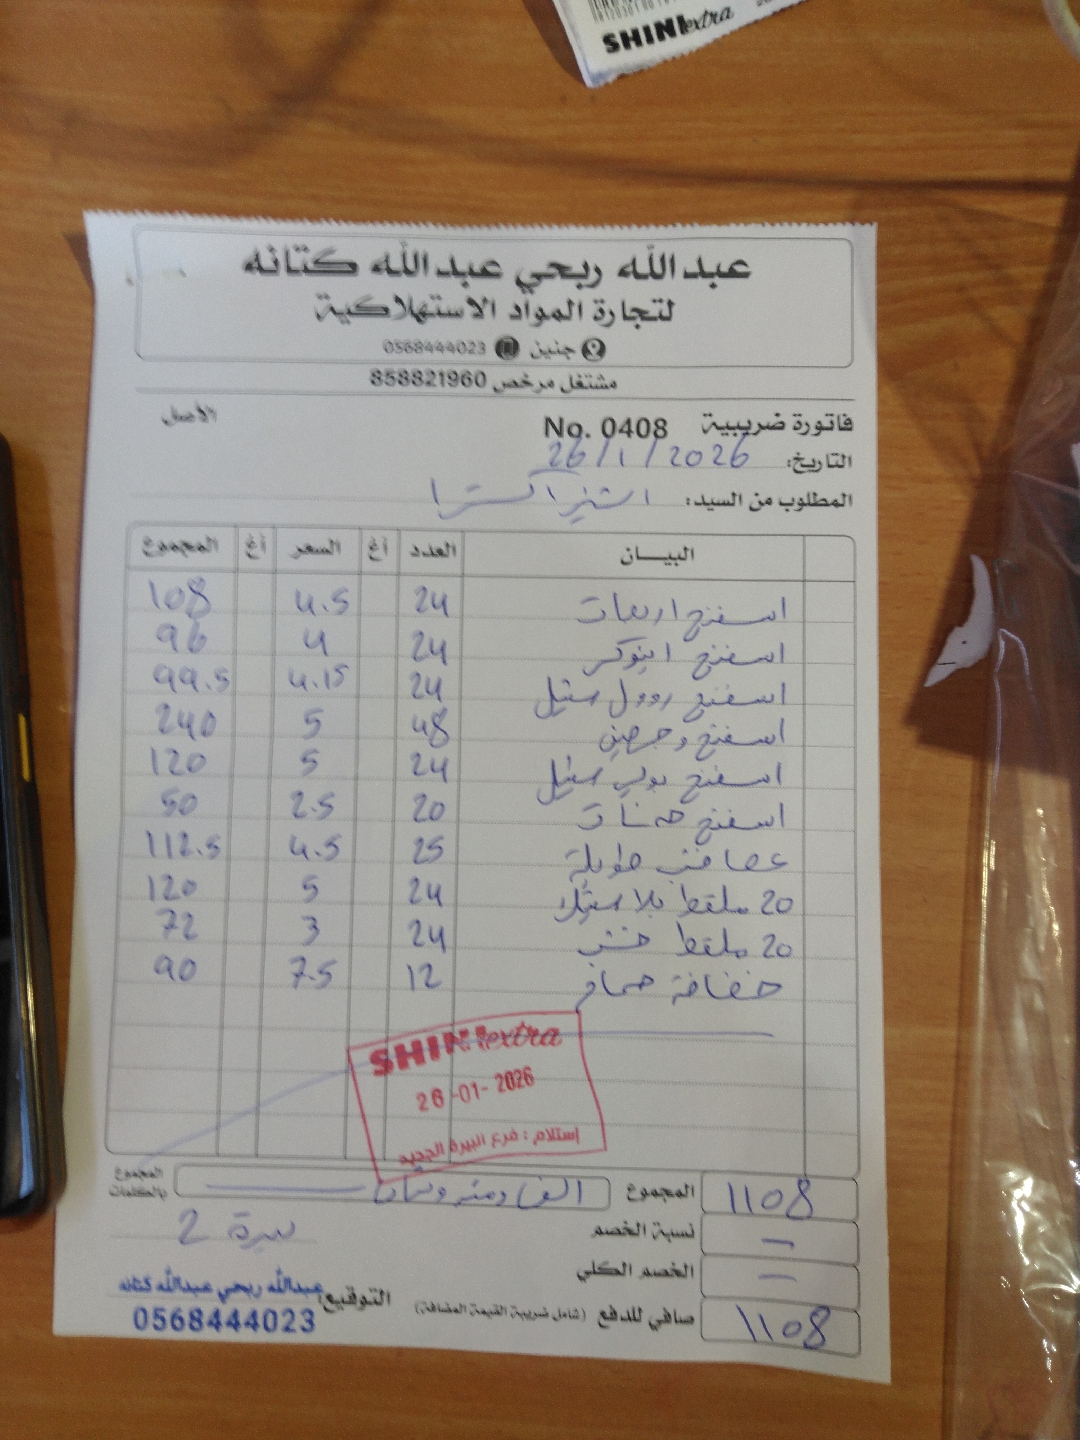 SHINIextra
عبدالله ربحي عبدالله كتانه
لتجارة المواد الاستهلاكية
جنين 0568444023
مشتغل مرخص 858821960
فاتورة ضريبية No. 0408 الأصل
التاريخ: 26/1/2026
المطلوب من السيد: اشيني اكسترا
البيـــان العدد أغ السعر أغ المجموع
اسفنج اربعات 24 4.5 108
اسفنج اينوكر 24 4 96
اسفنج روول ستيل 24 4.15 99.5
اسفنج وجهين 48 5 240
اسفنج بولي ستيل 24 5 120
اسفنج 20 2.5 50
عصا خشب طويلة 25 4.5 112.5
20 ملقط بلاستيك 24 5 120
20 ملقط خشب 24 3 72
خفافة حمام 12 7.5 90
SHINIextra
26-01-2026
إستلام : فرع البيرة الجديد
المجموع 1108
المجموع بالكلمات الف ومئة وثمان
نسبة الخصم —
بيرة 2
الخصم الكلي —
صافي للدفع (شامل ضريبة القيمة المضافة) 1108
التوقيع: عبدالله ربحي عبدالله كتانه
0568444023